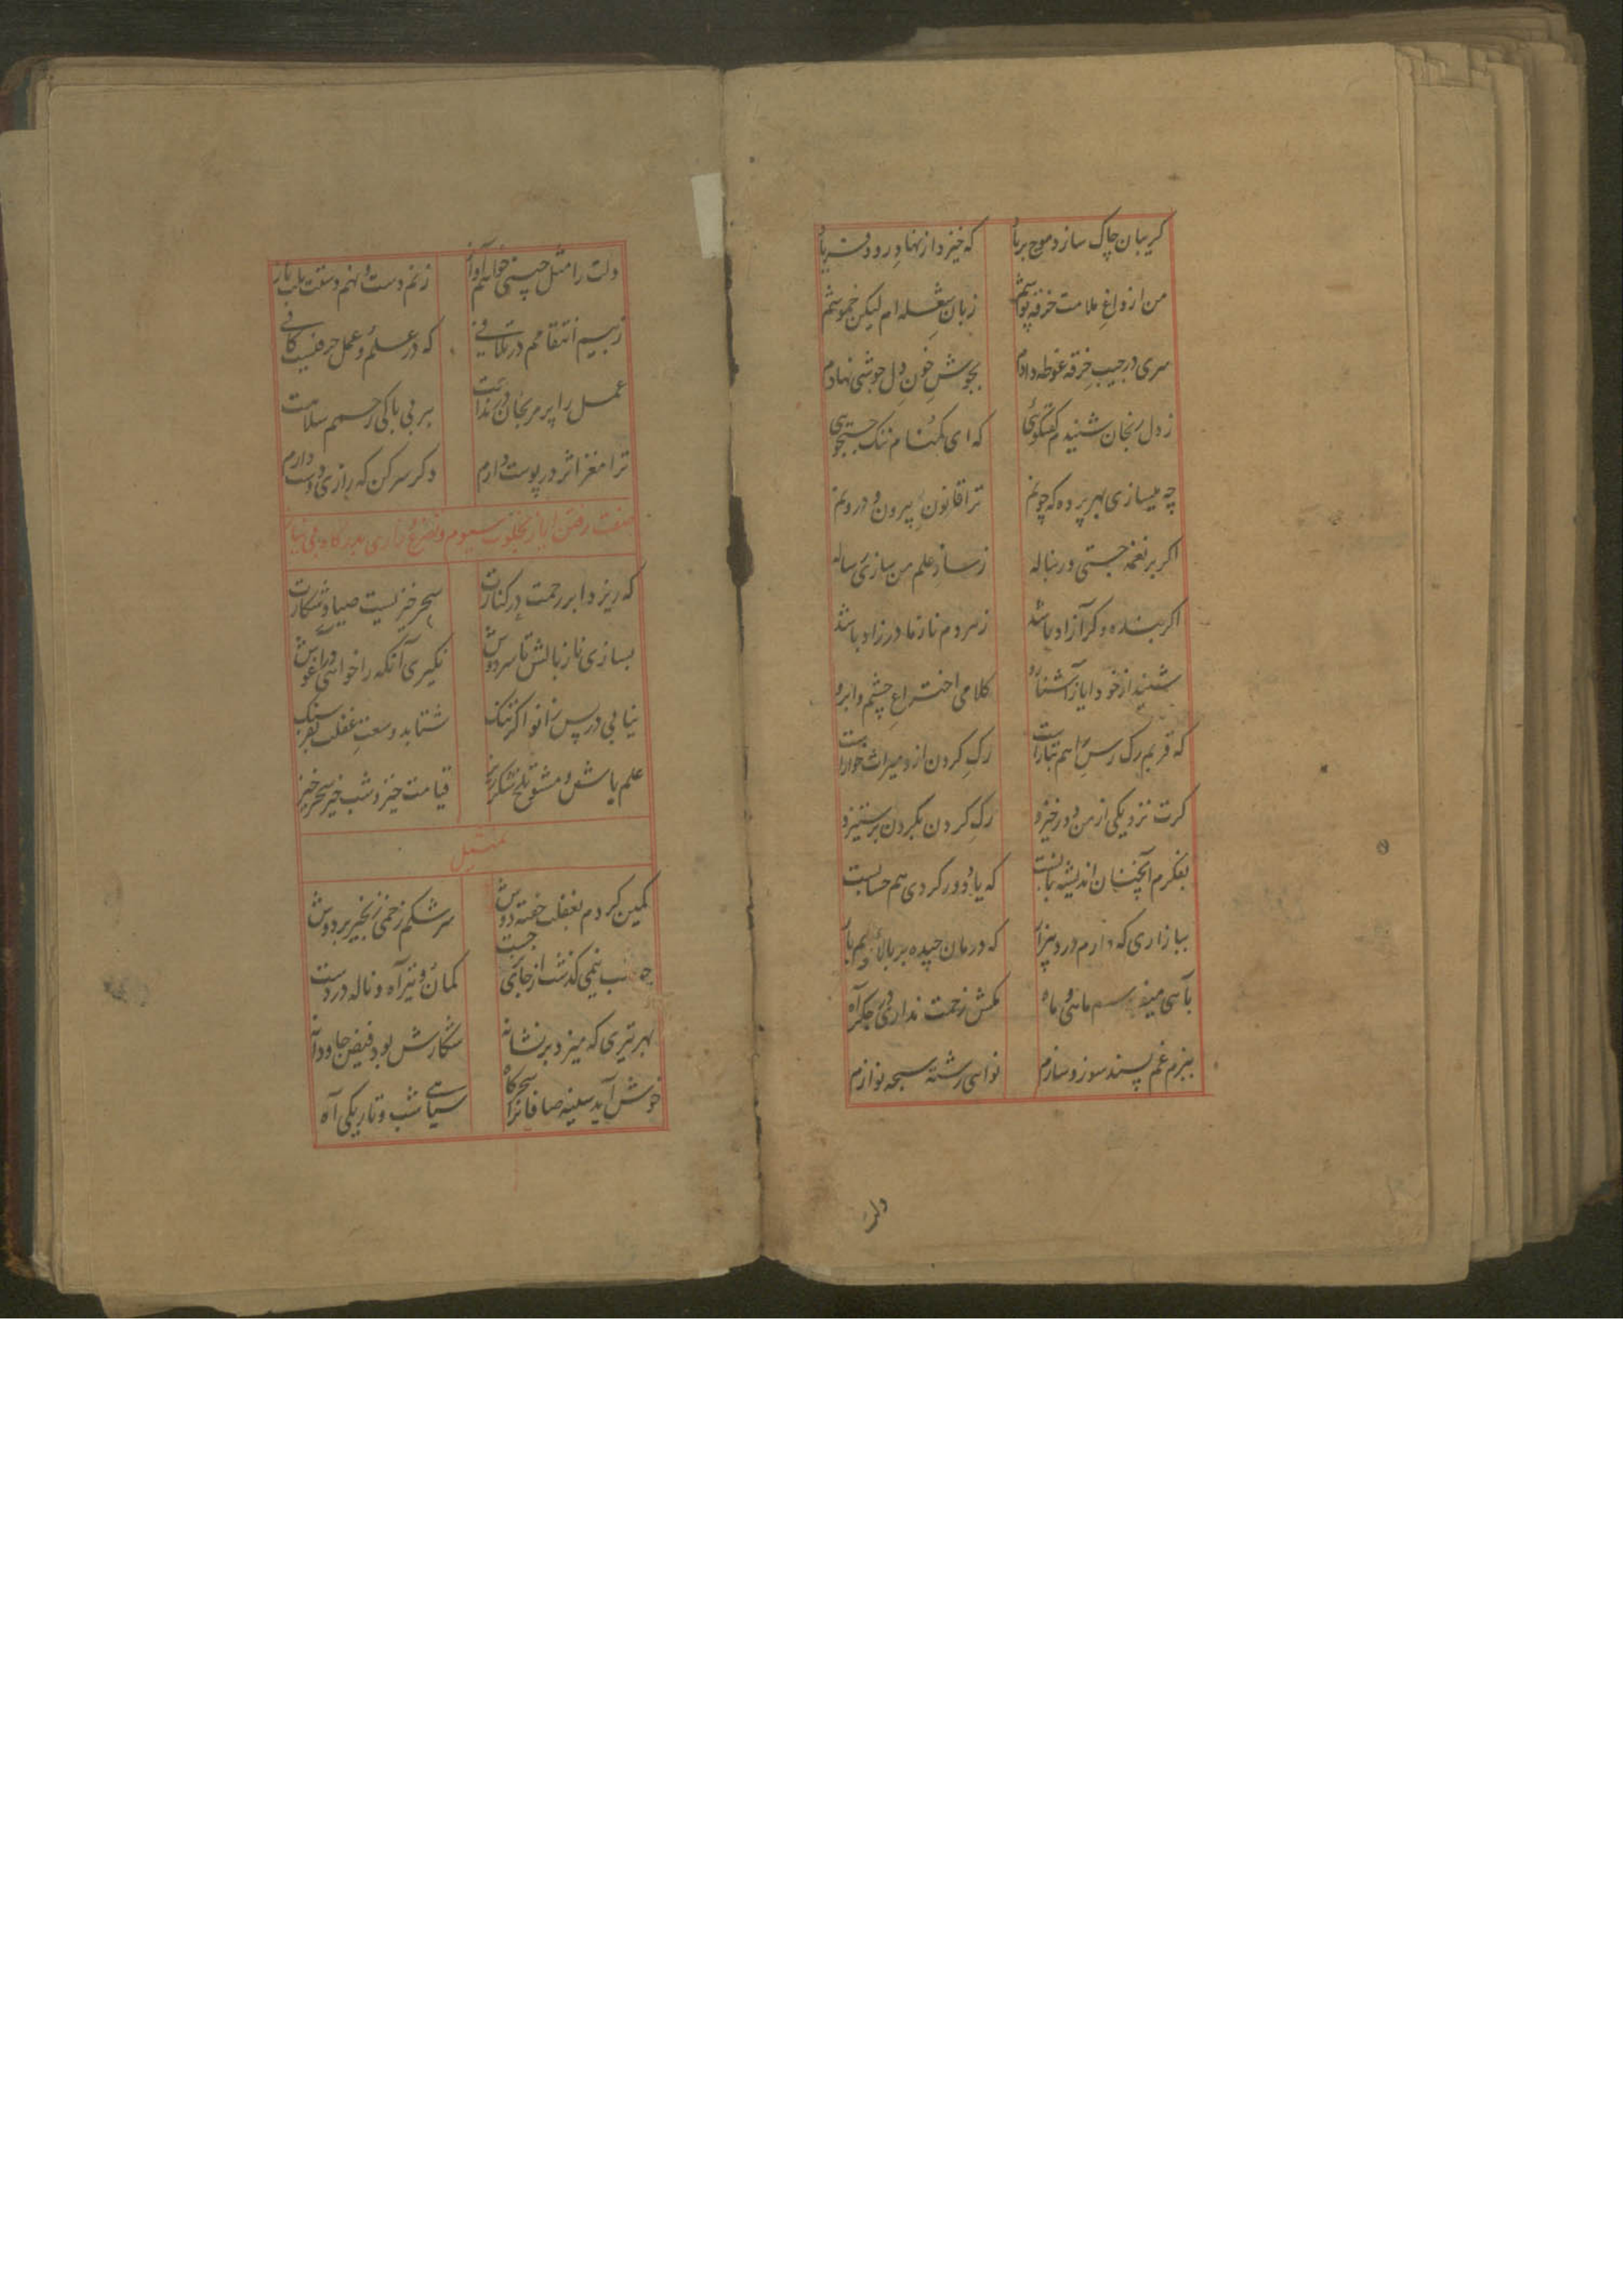 کریبان چاک سازد موج بر باد که خیزد از نهاد رود فریاد
من از داغ ملامت خرقه پوشم زبان شعله ام لیکن خموشم
سری در جیب خرقه غوطه دادم بجوش خون دل جوشی نهادم
ز دل رنجان شنیدم کفتکوئی که ای کمنام ننک جستجوی
چه میسازی بهر پرده که چونم ترا قانون بیرون و درونم
اکر بر نغمه جستی ور بناله ز ساز علم من سازی رساله
اکر بنده وکر آزاد باشد ز مردم نازما در زاد باشد
شنید از خود ایاز آشنا رو کلامی اختراع چشم و ابرو
که قربم رک رس هم تبارست رک کردن ازو میراث خوارست
کرت نزدیکی از من دور خیزد رک کردن بکردن بر ستیزد
بفکرم آنچنان اندیشه بایست که یا دور کردی هم حسابست
ببازاری که دارم درد بیزار که درمان چیده بر بالای هم بار
بآهی میفر ماهی و ماه مکش زحمت نداری در جکر آه
ببزم غم پسند سوز و سازم نوای رشته سبحه نوازم
دلت
دلت را مثل چینی خواهم آواز زنم دست و نهم دستت بلب باز
ز بیم انتقامم در تلافی که در علم و عمل حرفیست کافی
عمل را پر مرنجان در ندامت بر بی باکی رحمم سلامت
ترا مغز اثر در پوست دارم دکر سر کن که زاری دوست دارم
صفت رفتن ایاز بخلوت سیوم و تضرع و زاری بدرکاه بی نیاز
که ریزد ابر رحمت در کنارت سحر خیزیست صیاد شکارت
بسازی ناز بالش تا سر دوش نکیری آنکه را خواهی در آغوش
نیابی در پس زانو اکر تنک شتابد وسعت غفلت بفرسنک
علم باش و مشو تلخ شکرریز قیامت خیز و شب خیز سحر خیز
تمثیل
کمین کردم بغفلت خفته دوش سرشکم زخمی زنجیر بر دوش
شب نیمی کذشت از جای جست کمان و تیر آه و ناله در دست
بهر تیری که میزد بر نشانه شکارش بود فیض جاودانه
خوش آید سینه صافانرا سحرکاه سیاهی شب و تاریکی آه